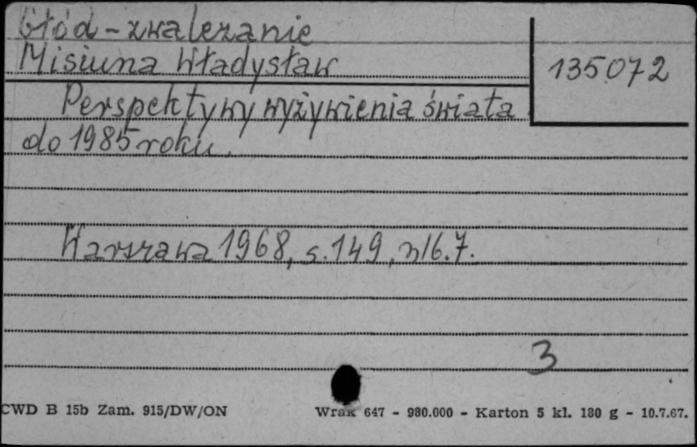 Głód - zwalczanie
Misiuna Władysław
135072
Perspektywy wyżywienia świata
do 1985 roku.
Warszawa 1968, s. 149, nlb. 7.
3
CWD B 15b Zam. 915/DW/ON
Wrak 647 - 980.000 - Karton 5 kl. 180 g - 10.7.67.